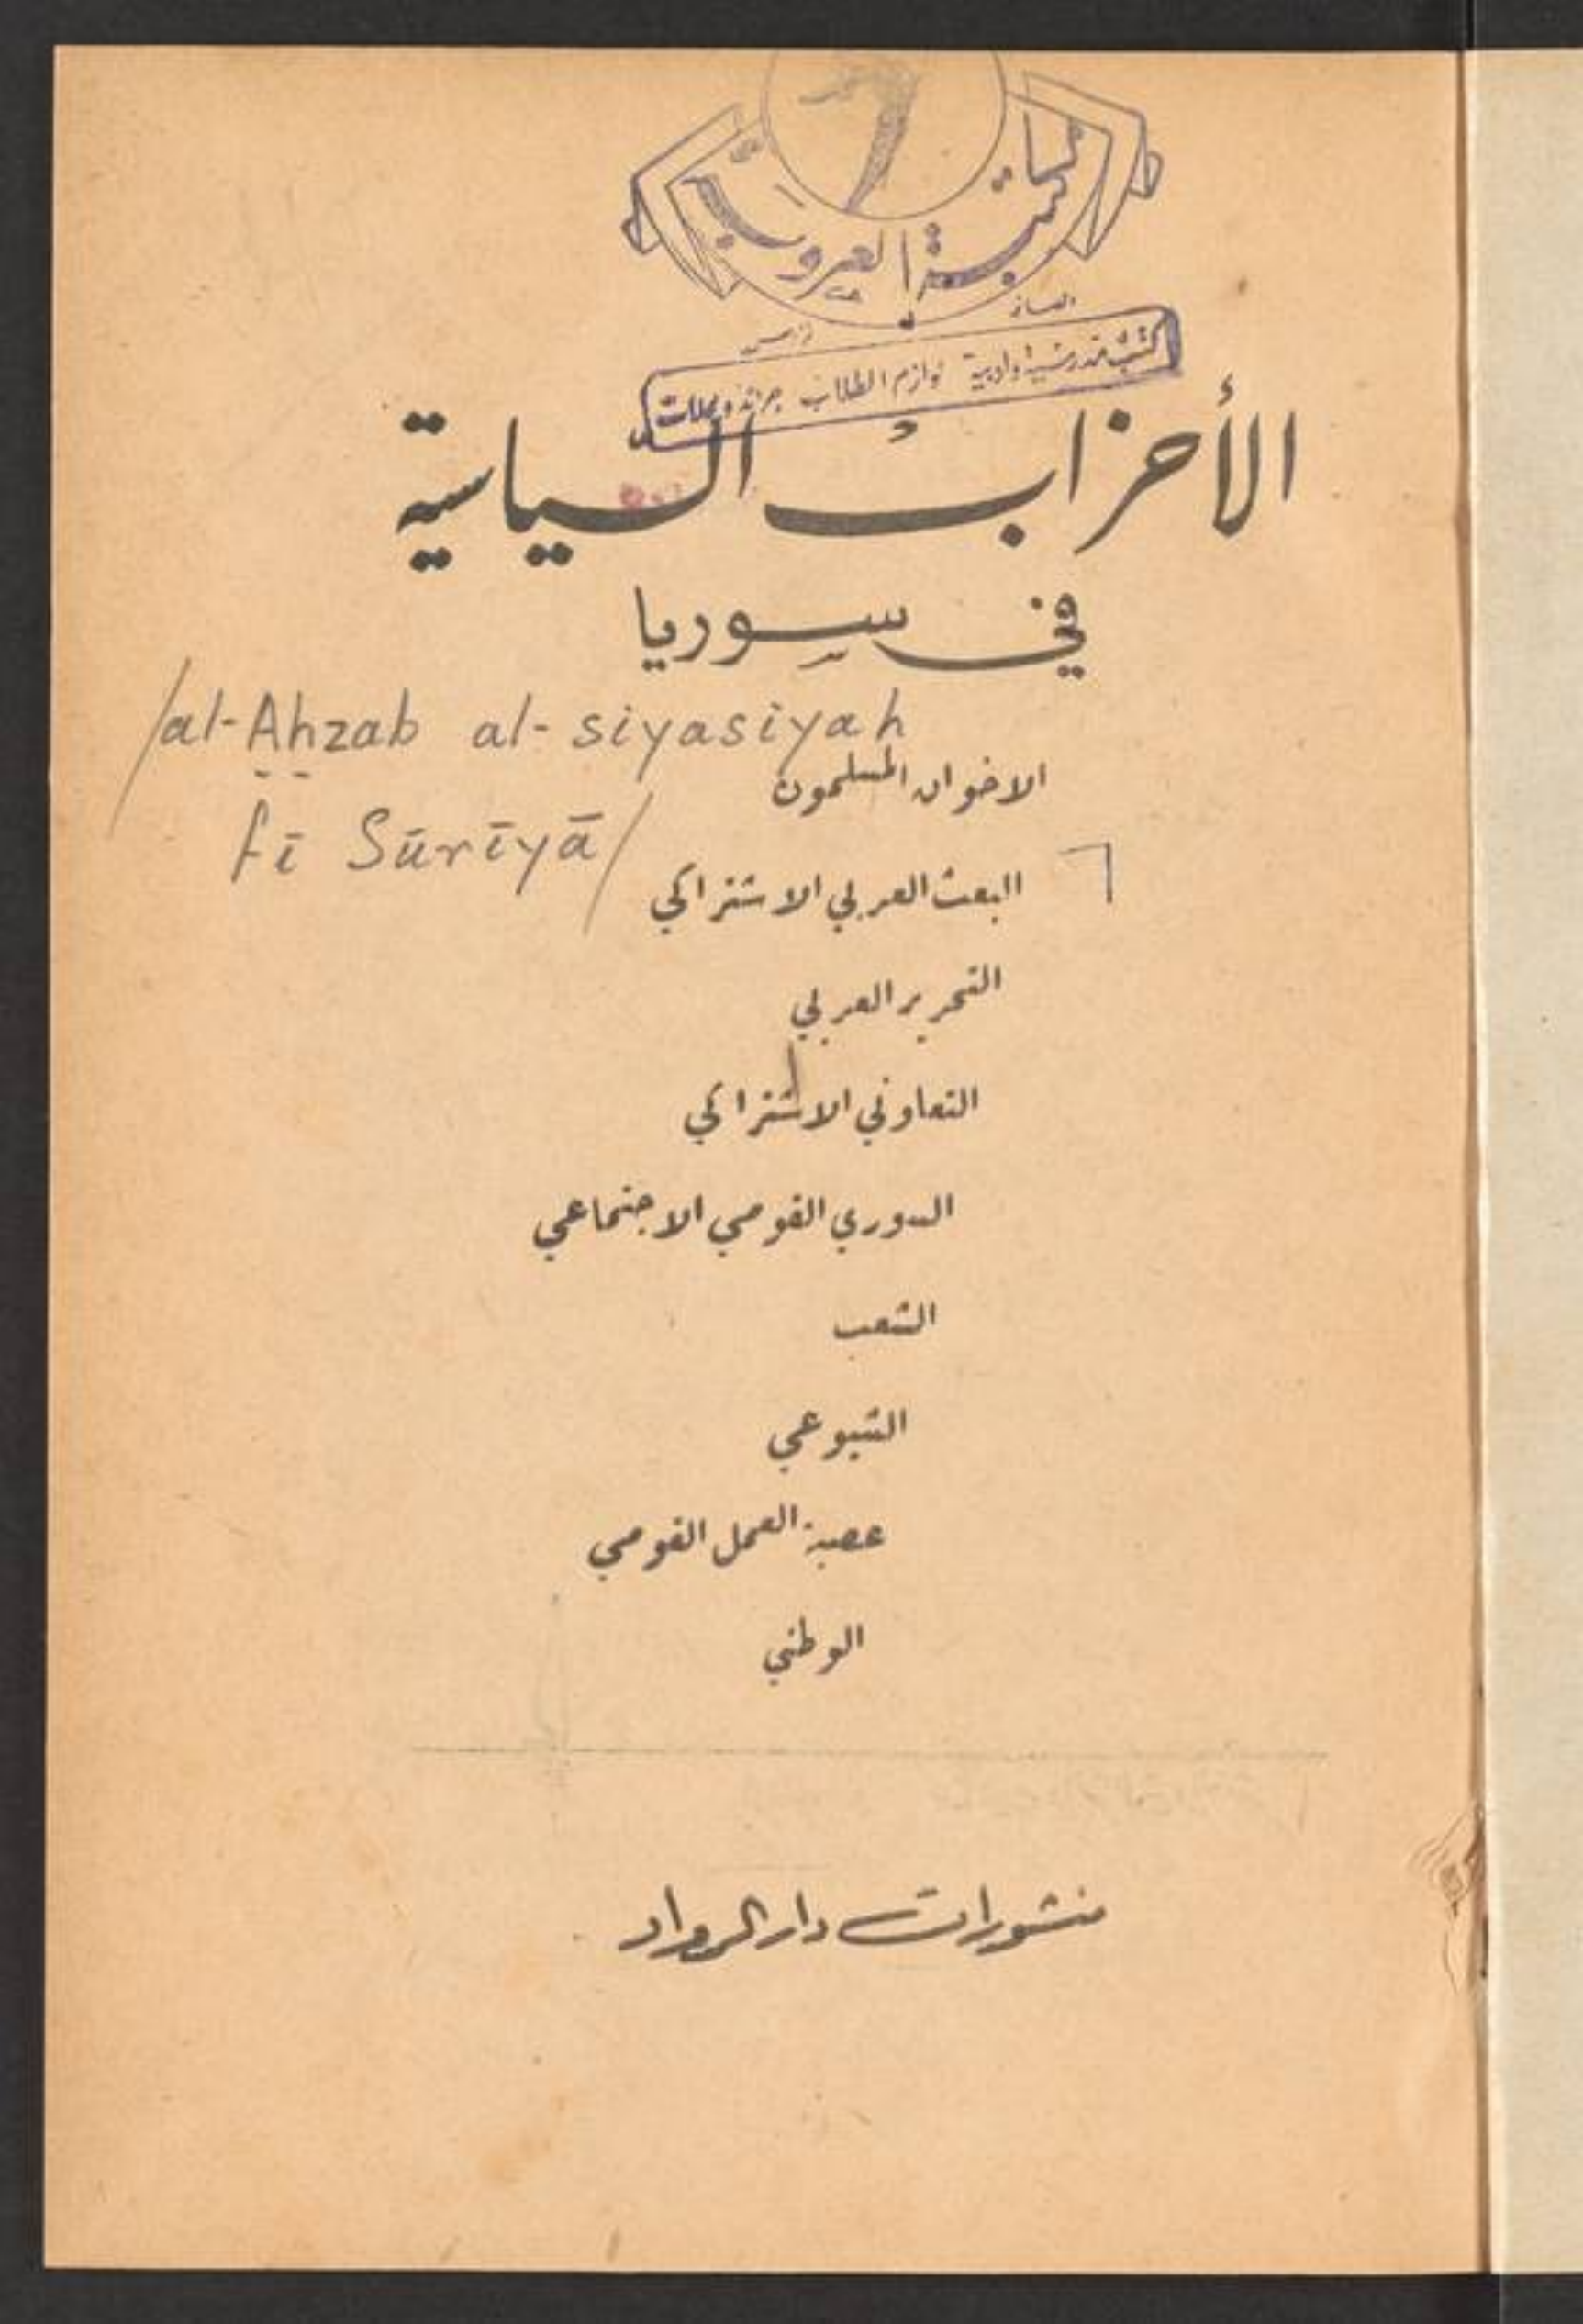 مكتبة العروبة
كتب مدرسية وادبية لوازم الطلاب جرائد ومجلات
الأحزاب السياسية
في سوريا
/al-Aḥzab al-siyasiyah
fī Sūrīyā/
الاخوان المسلمون
البعث العربي الاشتراكي
التحرير العربي
التعاوني الاشتراكي
السوري القومي الاجتماعي
الشعب
الشيوعي
عصبة العمل القومي
الوطني
منشورات دار الرواد